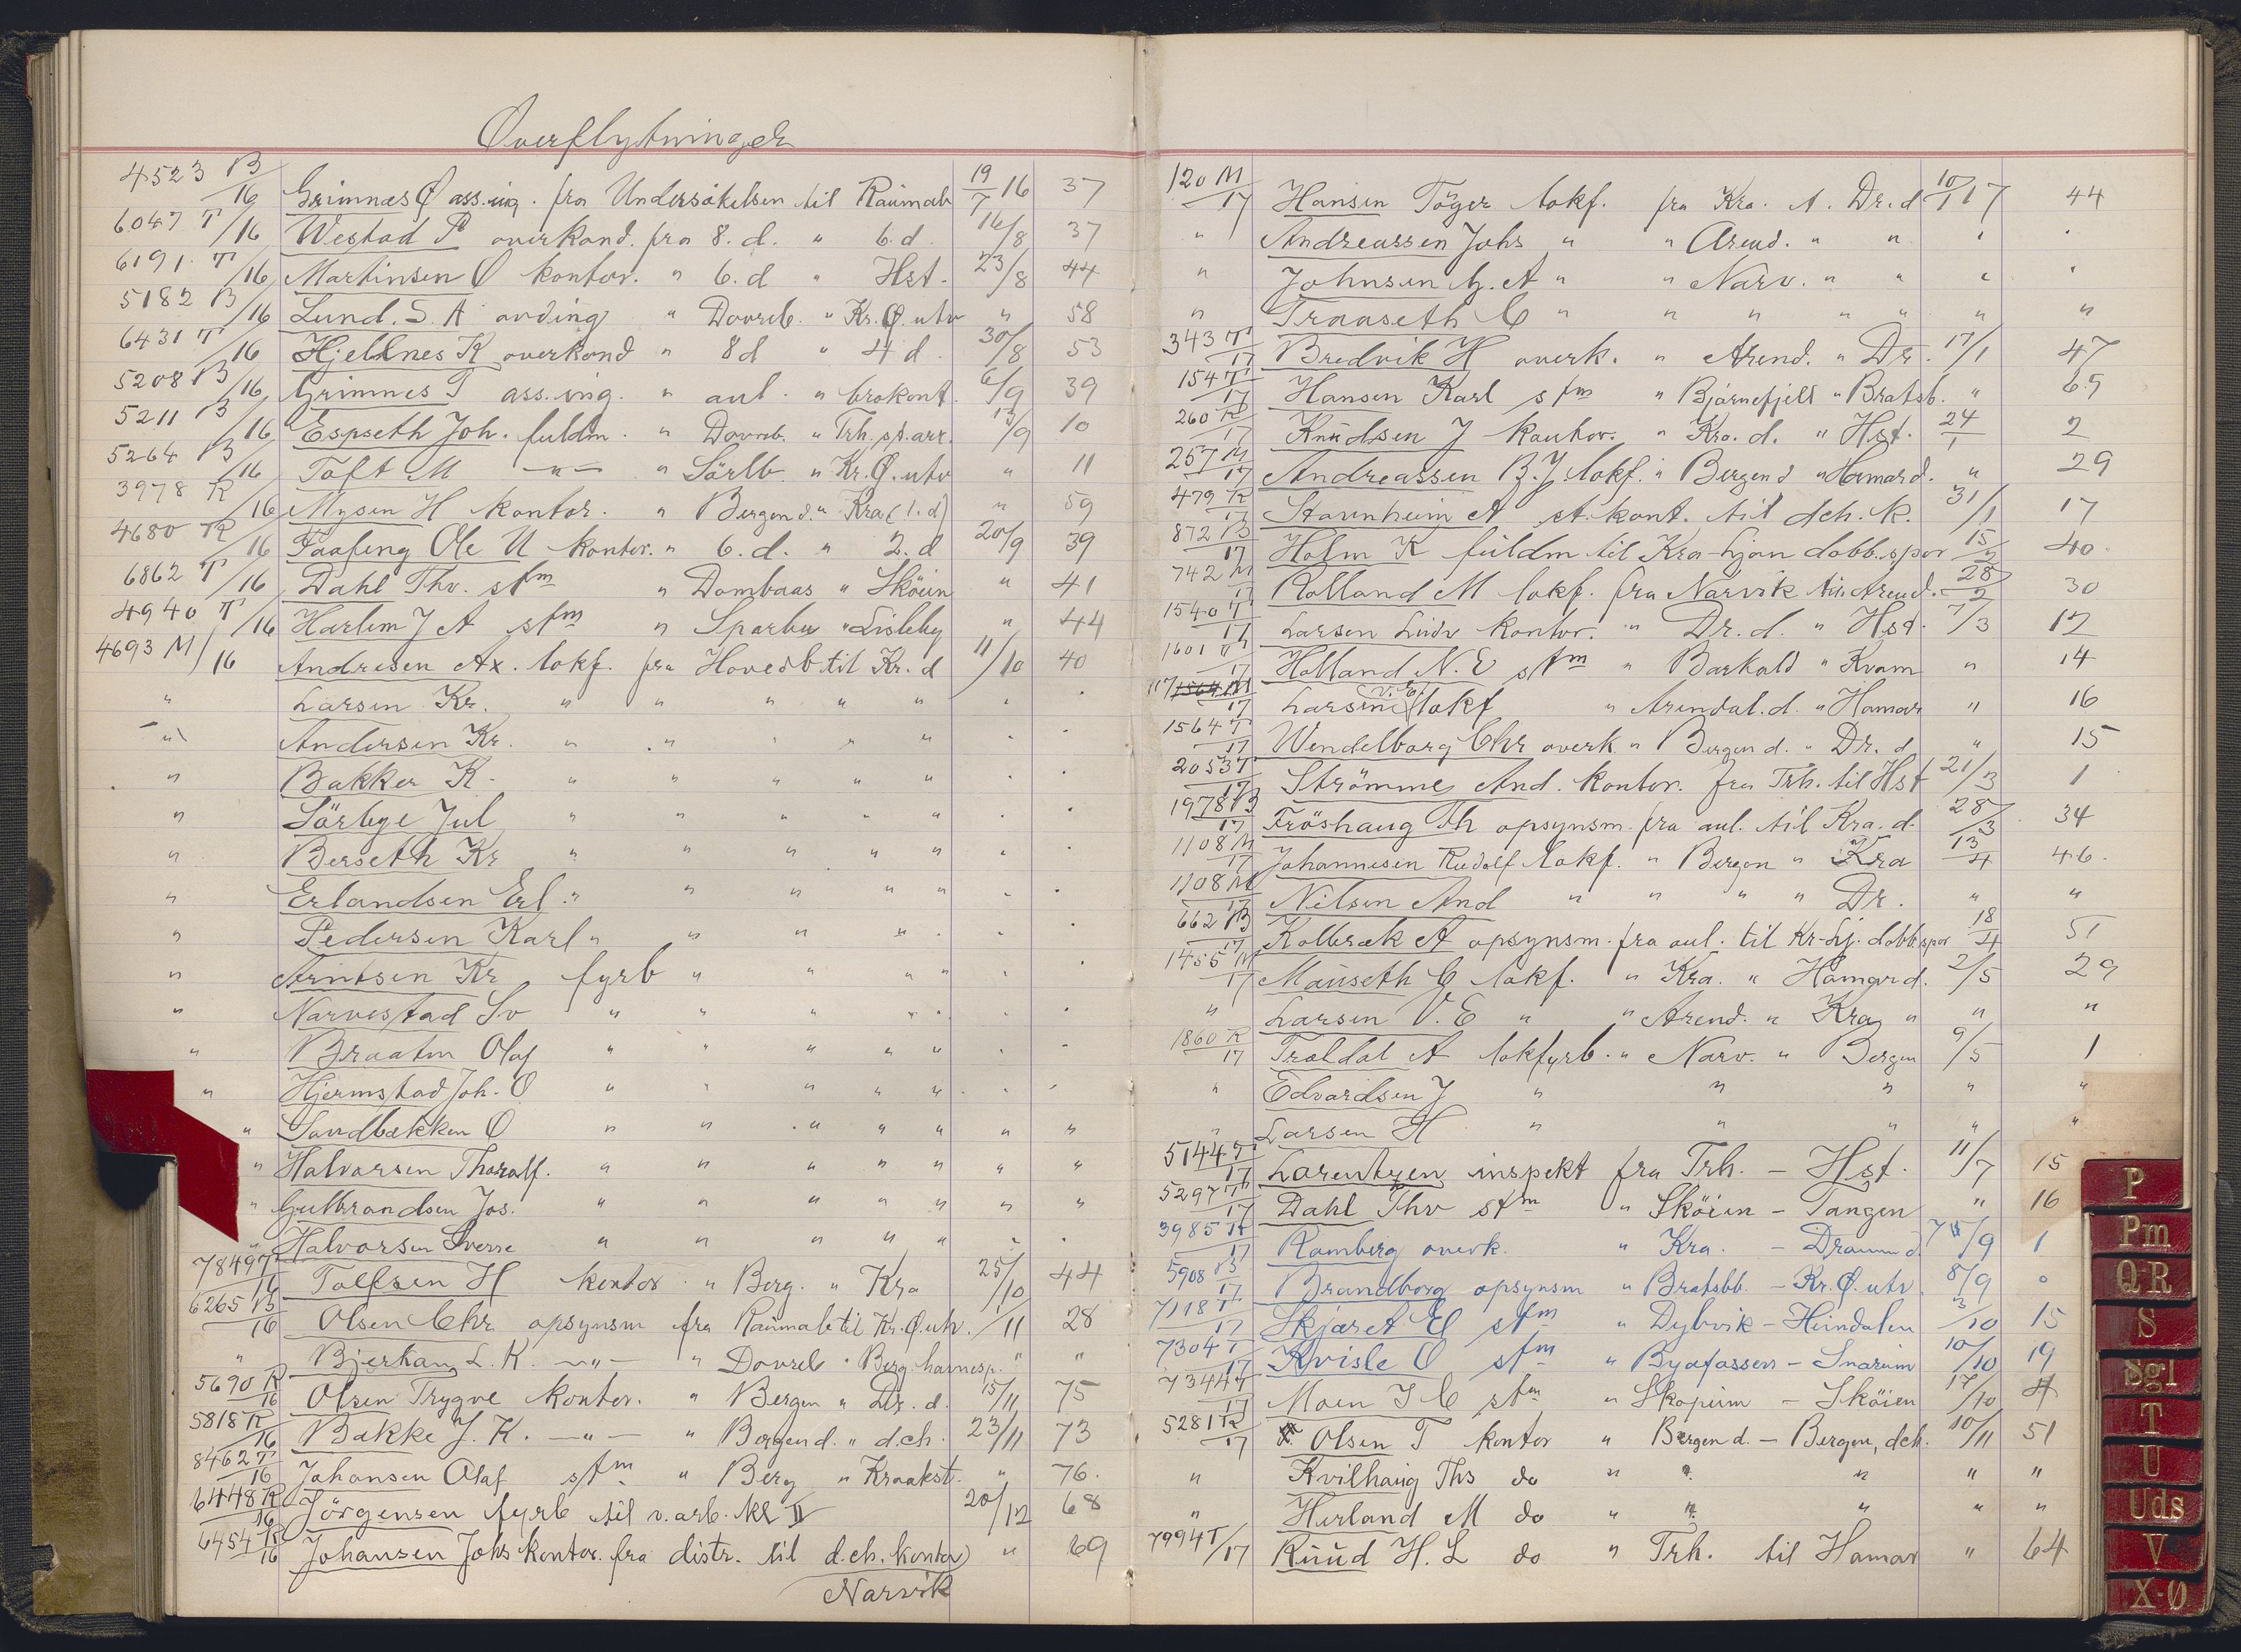 Overflytninger
4523 B/16 Grimnes Ø ass.ing. fra Undersökelsen til Raumab 19/7 16 37
6047 T/16 Westad P overkond. fra 8. d. " 6. d. 16/8 37
6191 T/16 Martinsen O kontor. " 6. d " Hst. 23/8 44
5182 B/16 Lund. S. A avding " Dovreb. " Kr. Ø. utv " 58
6431 T/16 Hjellnes K overkond " 8 d " 4 d. 30/8 53
5208 B/16 Grimnes T ass.ing. " anl. " brokont. 6/9 39
5211 B/16 Espseth Joh. fuldm. " Dovreb. " Trh. st. arr. 13/9 10
5264 B/16 Toft M —"— " Sörlb " Kr. Ø. utv " 11
3978 R/16 Mysen H kontor. " Bergen d. " Kra (1. d) " 59
4680 R/16 Faafeng Ole U kontor. " 6. d. " 2. d 20/9 39
6862 T/16 Dahl Thv. stm " Dombaas " Sköien " 41
4940 T/16 Harlem J A stm " Sparbu " Lisleby " 44
4693 M/16 Andresen Ax. lokf. fra Hovedb til Kr. d 11/10 40
" Larsen Kr. " " " " " " "
" Andersen Kr. " " " " " " "
" Bakken K. " " " " " " "
" Sörbye Jul " " " " " " "
" Berseth Kr " " " " " " "
" Erlandsen Erl. " " " " " " "
" Pedersen Karl " " " " " " "
" Arntsen Kr fyrb " " " " " "
" Narvestad Sv " " " " " " "
" Braaten Olaf " " " " " " "
" Hjermstad Joh. O " " " " " " "
" Sandbækken O " " " " " " "
" Halvorsen Thoralf. " " " " " " "
" Gulbrandsen Jos. " " " " " " "
" Halvorsen Sverre " " " " " " "
7849 T/16 Tollfsen H kontor " Berg. " Kra 25/10 44
6265 B/16 Olsen Chr opsynsm fra Raumab til Kr. Ø. utv. /11 28
" Bjerkan L. K. —"— " Dovreb " Berg. havnesp. " "
5690 R/16 Olsen Trygve kontor. " Bergen " Dr. d. 15/11 75
5818 R/16 Bakke J. K. —"— " Bergen d. " d.ch. 23/11 73
8462 T/16 Johansen Olaf stm " Berg " Kraakst. " 76.
6448 R/16 Jörgensen fyrb til v. arb. kl II 20/12 68
6454 R/16 Johansen Johs kontor. fra distr. til d.ch. kontor " 69
Narvik
120 M/17 Hansen Töger lokf. fra Kra. t. Dr. d 10/1 17 44
" Andreassen Johs " " Arend. " " " "
" Johnsen G. A " " Narv. " " " "
" Traaseth C " " " " " " "
343 T/17 Bredvik H overk. " Arend. " Dr. 17/1 47
154 T/17 Hansen Karl stm " Bjørnefjell " Bratsb. " 65
260 R/17 Knudsen J kontor. " Kra. d. " Hst. 24/1 2
257 M/17 Andreassen B. J. lokf. " Bergen d " Hamar d. " 29
479 R/17 Stavnheim A st. kont. til dch. k. 31/1 17
872 B/17 Holm K fuldm til Kra-Ljan dobb.spor 15/2 40.
742 M/17 Rolland M lokf. fra Narvik til Arend. 28/2 30
1540 T/17 Larsen Ludv kontor. " Dr. d. " Hst. 7/3 12
1601 T/17 Holland N. E stm " Barkald " Kvam " 14
117 1564 M/17 Larsen V. E. lokf " Arendal. d. " Hamar " 16
1564 T/17 Wendelborg Chr overk " Bergen d. " Dr. d " 15
2053 T/17 Strömme And. kontor. fra Trh. til Hst 21/3 1
1978 B/17 Fröshaug Th opsynsm. fra anl. til Kra. d. 28/3 34
1108 M/17 Johannesen Rudolf lokf. " Bergen " Kra 13/4 46.
1108 M/17 Nilsen And " " " " Dr. " "
662 B/17 Kolbræk A opsynsm. fra anl. til Kr-Lj. dobb.spor 18/4 51
1455 M/17 Mauseth C lokf. " Kra. " Hamar d. 2/5 29
" Larsen V. E " " Arend. " Kra " " "
1860 R/17 Trældal A lokfyrb. " Narv. " Bergen 9/5 1
" Edvardsen J " " " " "
" Larsen H " " " " "
5144 T/17 Larentzen inspekt fra Trh. – Hst. 11/7 15
5297 T/17 Dahl Thv stm " Sköien – Tangen " 16
3985 R/17 Ramberg overk. " Kra. – Drammen d. /9 1
5908 B/17 Brandborg opsynsm " Bratsbb. – Kr. Ø. utv. 8/9 "
7118 T/17 Skjæret E stm " Dybvik – Heindalen 3/10 15
7304 T/17 Kvisle O stm " Byafossen – Snarum 10/10 19
7344 T/17 Moen J C stm " Skopum – Sköien 17/10 4
5281 R/17 Olsen T kontor " Bergen d. – Bergen, dch. 10/11 51
" Kvilhaug Ths do " " " " "
" Herland M do " " " " "
7994 T/17 Ruud H. L do " Trh. til Hamar " 64
P
Pm
Q-R
S
Sgl
T
U
Uds
V
X-Ø